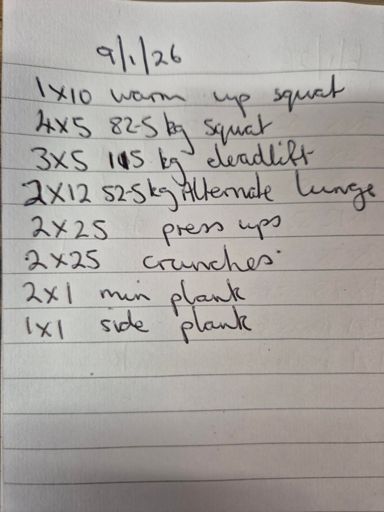 9/1/26
1x10 warm up squat
4x5 82.5 kg squat
3x5 115 kg deadlift
2x12 52.5kg Alternate lunge
2x25 press ups
2x25 crunches
2x1 min plank
1x1 side plank